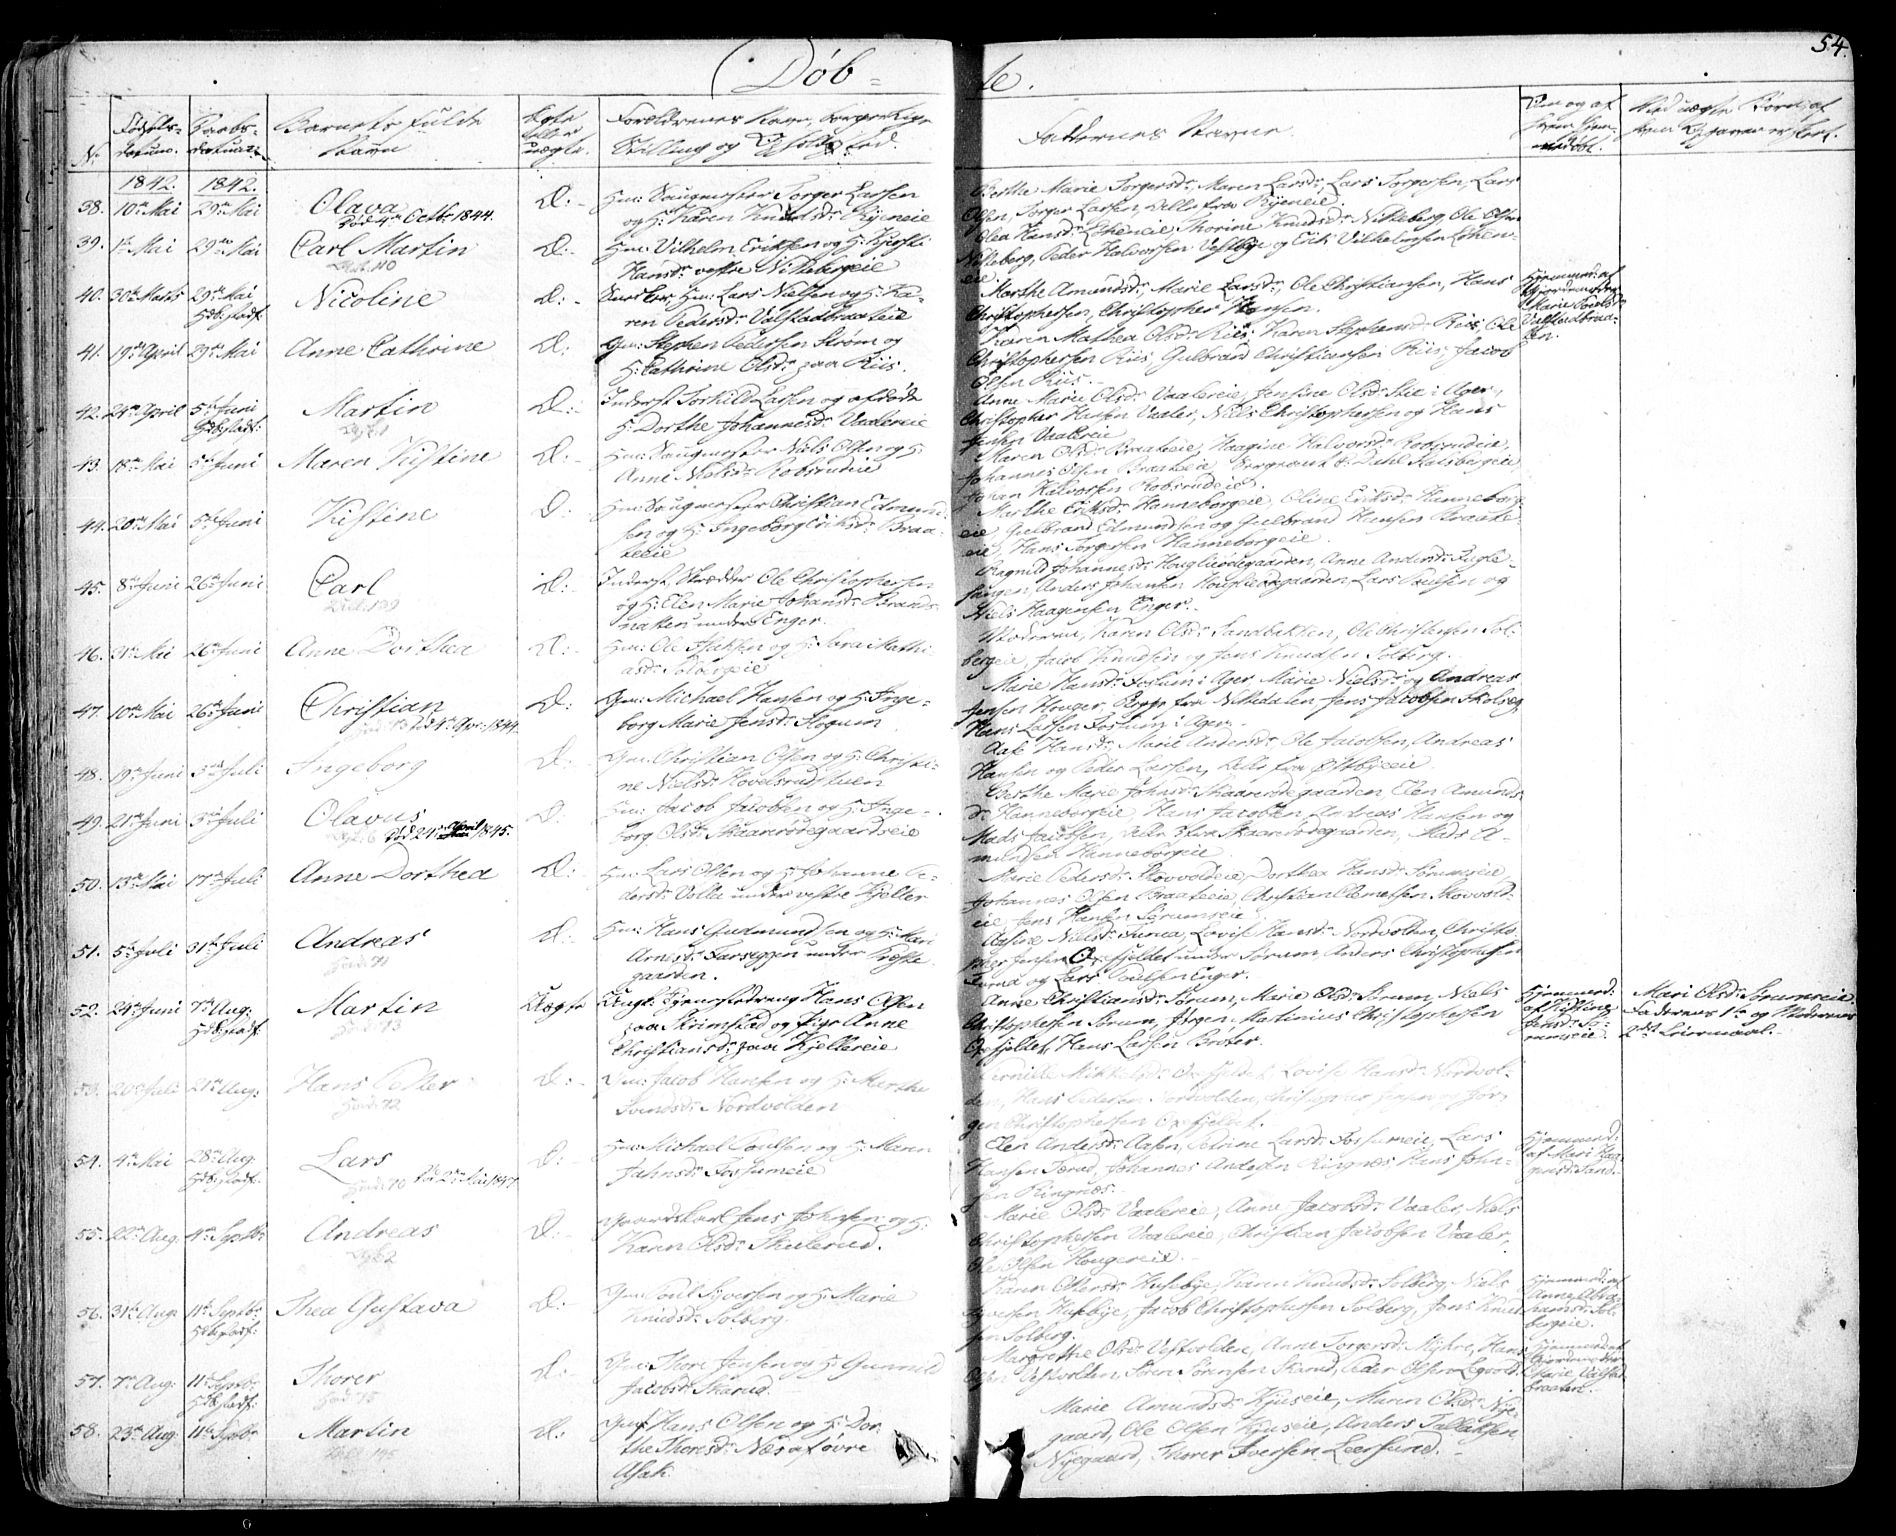 54.
Døb= te.
No
Fødsels-
datum.
Daabs-
datum.
Barnets fulde
Navn
Ægte
eller
uægte.
Forældrenes Navn, borgerlige
Stilling og Opholdssted.
Faddernes Navne.
1842. 1842.
38. 10de Mai 29de Mai Olava D:
Død 4de Octbr 1844.
Hm: Saugmester Torger Larsen
og H: Karen Knudsdr Kjeneie
Berthe Marie Torgersdr, Maren Larsdr, Lars Torgersen, Lars
Olsen, Torger Larsen, Alle fra Kjeneie.
39. 1ste Mai 29de Mai Carl Martin D:
Hm: Vilhelm Eriksen og H: Kjersti
Hansdr vestre Nittebergeie
Olea Hansdr Løkeneie, Thorine Knudsdr Nitteberg, Ole Olsen
Nitteberg, Peder Halvorsen Vestbye og Erik Vilhelmsen Løken-
eie.
40. 30te Marts 29de Mai Nicoline D:
Hdbstadf:
Hm: Lars Nielsen og H: Ka-
ren Pedersdr Valstadbraateeie
Marthe Amundsdr, Marie Larsdr, Ole Christiansen, Hans
Christophersen, Christopher Hansen.
Hjemmed: af
Gjordmoder
Marie
Valstadbraa-
ten.
41. 19de April 29de Mai Anne Cathrine D:
Gm: Stephen Pedersen Strøm og
H: Cathrine Olsdr paa Riis.
Karen Mathea Olsdr Riis, Karen Stephensdr Riis, Ole
Christophersen Riis, Gulbrand Christiansen Riis, Jacob
Olsen Riis.
42. 21de April 5te Juni Martin D:
Hdbstadf:
Inderst Torkild Larsen og afdøde
H: Dorthe Johannesdr Vaalereie
Anne Marie Olsdr Vaalereie, Jensine Olsdr Stie i Ager,
Christopher Hansen Vaaler, Niels Christophersen og Hans
Jensen Vaalereie
43. 18de Mai 5te Juni Maren Kistine D:
Hm: Saugmester Niels Olsen og H:
Anne Nielsdr Robsrudeie
Maren Olsdr Braateeie, Haagine Halvorsdr Robsrudeie,
Johannes Olsen Braateeie, Sergeant P. Dahl
Johan Halvorsen Robsrudeie.
44. 20de Mai 5te Juni Kistine D:
Hm: Saugmester Christian Edmund-
sen og H: Ingeborg Eriksdr Braa-
teeie
Marthe Eriksdr Hanneborgeie, Oline Eriksdr Hanneborg-
eie, Gulbrand Edmundsen og Gulbrand Hansen Braate-
eie, Hans Torgersen Hanneborgeie.
45. 8de Juni 26de Juni Carl D:
Inderst Skrædder Ole Christophersen
og H: Elen Marie Johansdr Brands-
natten under Enger.
Ragnild Johannesdr Houglieødegaarden, Anne Andersdr Fugle-
sangen, Anders Johansen Houglieødegaarden, Lars Poulsen og
Niels Haagensen Enger.
46. 31te Mai 26de Juni Anne Dorthea D:
Hm: Ole Isaksen og H: Sara Mathi-
asdr Solbergeie
Moderen, Karen Olsdr Sandbakken, Ole Christensen Sol-
bergeie, Jacob Knudsen og Jens Knudsen Solberg.
47. 10de Mai 26de Juni Christian D:
Død 4de Apr: 1844.
Gm: Michael Hansen og H: Inge-
borg Marie Jensdr Flogum
Marie Hansdr Fossum i Ager, Marie Nielsdr og Andreas
Jensen Houger, Begge fra Nittedalen, Jens Jacobsen
Hans Larsen Fossum i Ager.
48. 19de Juni 3die Juli Ingeborg D:
Gm: Christian Olsen og H: Christi-
ne Nielsdr Hovelsrudstuen
Aase Hansdr, Marie Andersdr, Ole Jacobsen, Andreas
Hansen og Peder Larsen, Alle fra Østbyeeie
49. 21de Juni 3die Juli Olavus D:
Død 24de April 1845.
Hm: Jacob Jacobsen og H: Inge-
borg Olsdr Skaarødegaardseie
Berthe Marie Johnsdr Skaarødegaarden, Elen Amunds-
dr Hanneborgeie, Hans Jacobsen, Andreas Hansen og
Mads Jacobsen, Alle 3 fra Skaarødegaarden, Mads A-
mundsen Hanneborgeie.
50. 13de Mai 17de Juli Anne Dorthea D:
Hm: Lars Olsen og H: Johanne Pe-
dersdr Volla under vestre Kjeller
Marie Pedersdr Skovvoldeie, Dorthea Hansdr Sørumseie,
Johannes Olsen Braateeie, Christian Clemetsen Skovvold-
eie, Jens Hansen Sørumseie.
51. 5te Juli 31te Juli Andreas D:
Hm: Hans Gudmundsen og H: Mari
Arnesdr Farseggen under Præste-
gaarden.
Aasine Nielsdr Furua, Lovise Hansdr Nordvolden, Christo-
pher Jensen Oxefjeldet under Sørum, Anders Christophersen
Furua og Lars Poulsen Enger.
52. 24de Juni 7de Aug: Martin Uægte
Hdbstadf:
Ungk: Tjenestedreng Hans Olsen
paa Skrimstad og Pige Anne
Christiansdr paa Kjellereie
Anne Christiansdr Sørum, Marie Olsdr Sørum, Niels
Christophersen Sørum, Jørgen Matinius Christophersen
Oxefjeldet, Hans Larsen Brøter.
Hjemmed:
af Kistine
Jensdr Sø-
rumseie.
Mari Olsdr Sørumseie.
Faderens 1ste og Moderens
2det Leiermaal.
53. 20de Juli 21de Aug: Hans Peder D:
Gm: Jacob Hansen og H: Marthe
Svendsdr Nordvolden
Pernille Mikkelsdr Oxefjeldet, Lovise Hansdr Nordvol-
den, Hans Pedersen Nordvolden, Christopher Jensen og Jør-
gen Christophersen Oxefjeldet.
54. 4de Mai 28de Aug: Lars D:
Hdbstadf:
Død 2den Mai 1847
Hm: Michael Poulsen og H: Maren
Jahnsdr Fossumeie
Elen Andersdr Aasen, Oline Larsdr Fossumeie, Lars
Hansen Tærud, Johannes Andersen Ringnæs, Hans John-
sen Ringnæs.
Hjemmed:
af Mari Haa-
gensdr
55. 22de Aug: 4de Septbr Andreas D:
Gaardskarl Jens Johnsen og H:
Karen Olsdr Skulerud.
Marie Olsdr Vaalereie, Anne Jacobsdr Vaaler, Niels
Christophersen Vaalereie, Christian Jacobsen Vaaler,
Ole Olsen Hougereie.
56. 31te Aug: 11te Septbr Thea Gustava D:
Hdbstadf:
Gm: Poul Syversen og H: Marie
Knudsdr Solberg.
Karen Ottersdr Husebye, Karen Knudsdr Solberg, Niels
Syversen Husebye, Jacob Christophersen Solberg, Jens Knud-
sen Solberg.
Hjemmed: af
Anne Abra-
hamsdr Sol-
bergeie.
57. 7de Aug: 11te Septbr Thorer D:
Hdbstadf:
Gm: Thore Jensen og H: Gunnild
Jacobsdr Skarud.
Margrethe Olsdr Vestvolden, Anne Torgersdr Myhre, Hans
Olsen Vestvolden, Søren Sørensen Skarud, Peder Olsen
Hjemmed: af
Gjordmoder
Marie Valstad-
braaten.
58. 23de Aug: 11te Septbr Martin D:
Gm: Hans Olsen og H: Dor-
the Thoresdr Næs af øvre
Asak
Marie Amundsdr Kjuseie, Maren Olsdr Nye-
gaard, Ole Olsen Kjuseie, Anders Tallaksen
Nyegaard, Thorer Iversen Leersund.